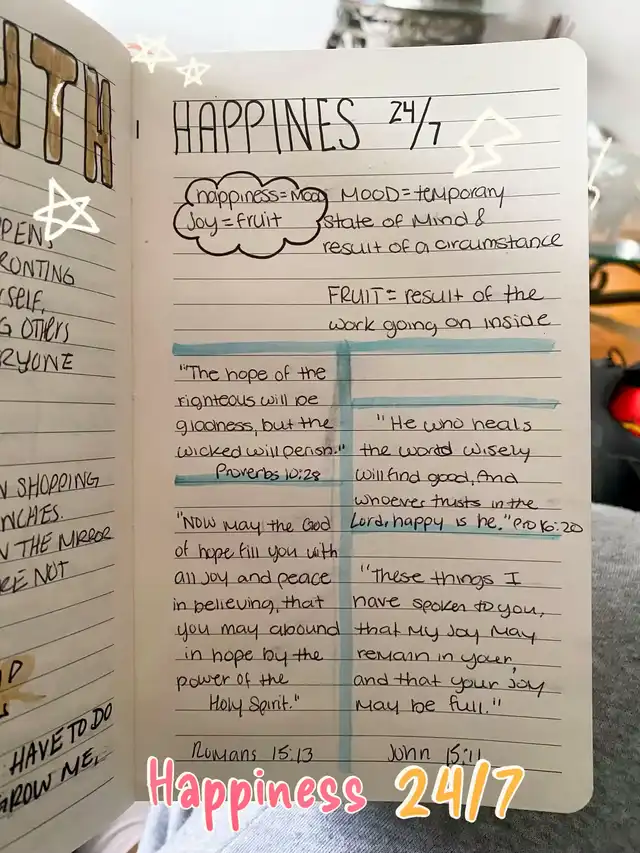 NTH
PPENS
RONTING
RSELF,
G OTHERS
ERYONE
N SHOPPING
NCHES.
N THE MIRROR
RE NOT
HAVE TO DO
GROW ME,
HAPPINES 24/7
happiness = Mood
Joy = fruit
MOOD = temporary
State of Mind &
result of a circumstance
FRUIT = result of the
work going on inside
"The hope of the
righteous will be
gladness, but the
wicked will perish."
Proverbs 10:28
"NOW may the God
of hope fill you with
all joy and peace
in believing, that
you may abound
in hope by the
power of the
Holy Spirit."
Romans 15:13
"He who heals
the world wisely
will find good, And
whoever trusts in the
Lord, happy is he." Pro 16:20
"These things I
have spoken to you,
that My Joy May
remain in your,
and that your joy
may be full."
John 15:11
Happiness 24/7